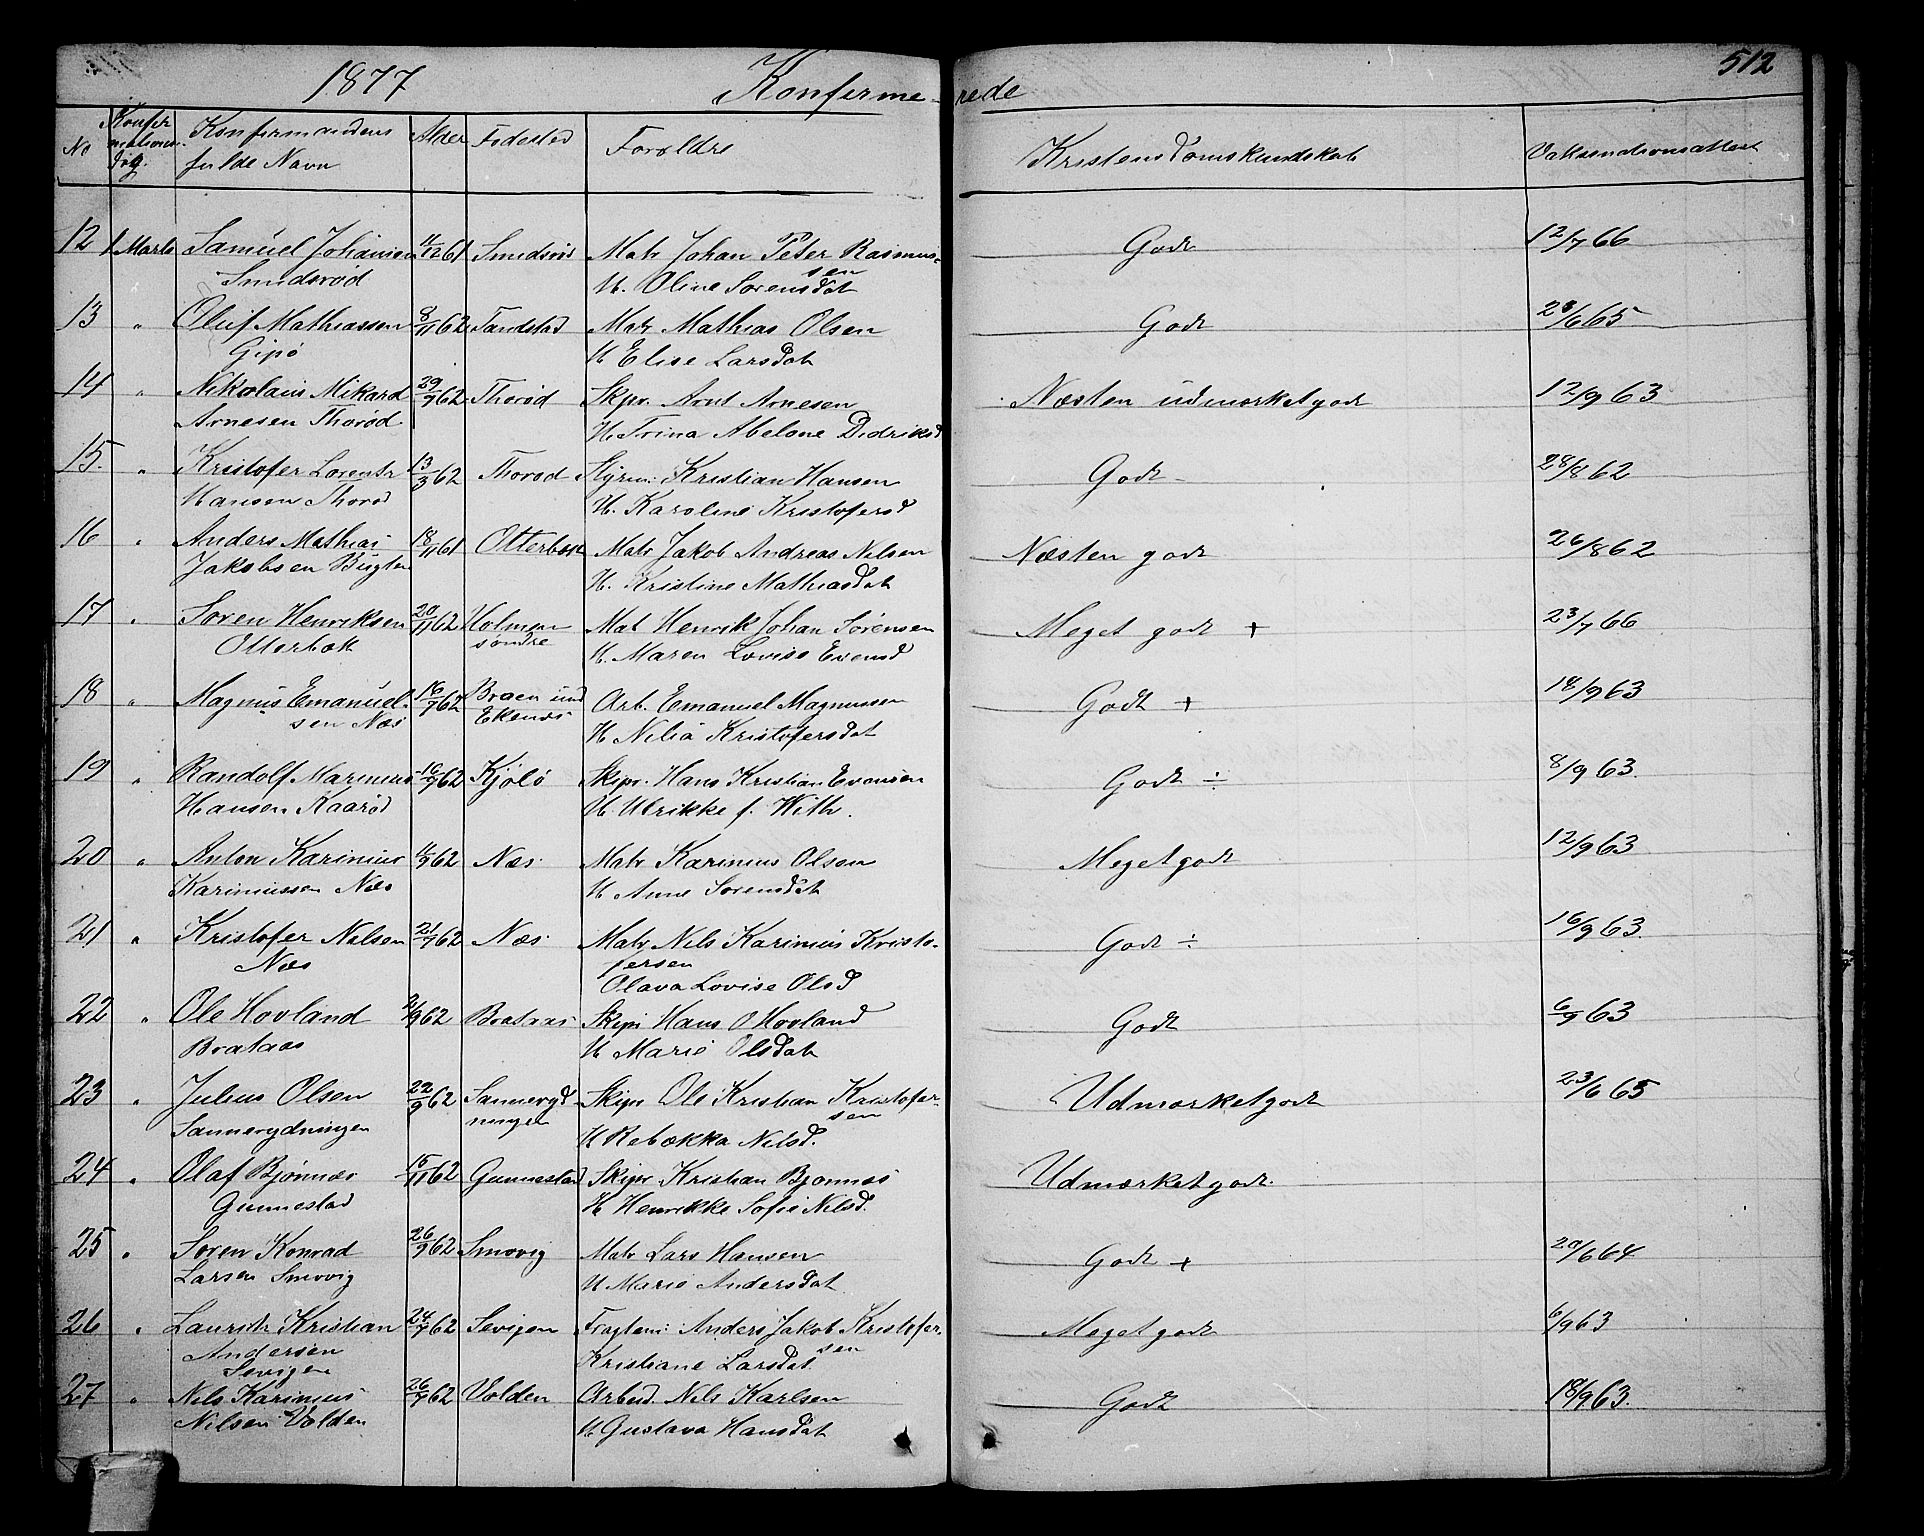 512
1877 Konferme- rede
No Konfirmations dag. Konfirmandens fulde Navn Alder Fødested Forældre Kristendomskundskab Vaksinationsattest
12 1 Marts Samuel Johansen 11/12 61 Smidsrød Matr Johan Peter Rasmus- Godt 12/7 66
Smidsrød sen
H. Oline Sørensdat
13 " Oluf Mathiassen 8/11 62 Sandstad Matr Mathias Olsen Godt 23/6 65
Gipø H Elise Larsdat
14 " Nikolaus Mikard 29/9 62 Thorød Skpr. Arnt Arnesen Næsten udmærket godt 12/9 63
Arnesen Thorød H. Trina Abelone Didriksd
15. " Kristofer Lorents 13/3 62 Thorød Styrm: Kristian Hansen Godt 28/8 62
Hansen Thorød H. Karoline Kristofersd
16 " Anders Mathias 18/11 61 Otterbæk Matr Jakob Andreas Nilsen Næsten godt 26/8 62
Jakobsen Bugten H. Kristine Mathiasdat
17 " Søren Henriksen 20/11 62 Holmen Mat Henrik Johan Sørensen Meget godt + 23/7 66
Otterbæk søndre H. Maren Lovise Evensd
18 " Magnus Emanuel- 16/7 62 Braen und Arb. Emanuel Magnussen Godt + 18/9 63
sen Næs Ekenæs H Nilia Kristofersdat
19 " Randolf Marinius 16/7 62 Kjølø Skipr. Hans Kristian Evensen Godt ÷ 8/9 63.
Hansen Kaarød H. Ulrikke f. With.
20 " Anton Karinius 11/9 62 Næs Matr Karinius Olsen Meget godt 12/9 63
Kariniussen Næs H Anne Sørensdat
21 " Kristofer Nilsen 21/7 62 Næs Matr Nils Karinius Kristo- Godt ÷ 16/9 63.
Næs fersen
Olava Lovise Olsd
22 " Ole Hovland 2/9 62 Brataas Skipr Hans O Hovland Godt 6/9 63
Brataas H Marie Olsdat
23 " Julius Olsen 22/9 62 Sanneryd- Skipr Ole Kristian Kristofer- Udmærket godt 23/6 65
Sannerydningen ningen sen
H Rebækka Nilsd.
24 " Olaf Bjønnæs 15/11 62 Gunnestad Skipr. Kristian Bjønnæs Udmærket godt.
Gunnestad H Henrikke Sofie Nilsd.
25 " Søren Konrad 26/9 62 Smovig Matr Lars Hansen Godt + 20/6 64
Larsen Smovig H Marie Andersdat
26 " Laurits Kristian 24/7 62 Sevigen Fragtem: Anders Jakob Kristofer- Meget godt 6/9 63
Andersen sen
Sevigen Kristiane Larsdat
27 " Nils Karinius 26/7 62 Volden Arbeid. Nils Karlsen Godt 18/9 63.
Nilsen Volden H Gustava Hansdat